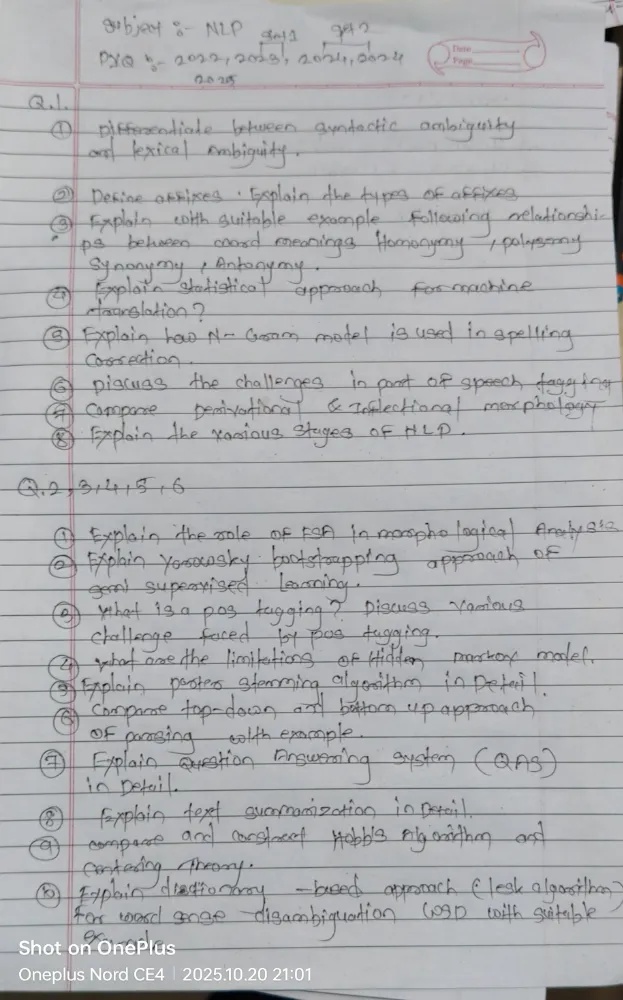 Subject :- NLP
PYQ :- 2022, 2023, 2024, 2024
2025
Date
Page
Q.1.
① Differentiate between syntactic ambiguity
and lexical ambiguity.
② Define affixes. Explain the types of affixes
③ Explain with suitable example following relationshi
ps between word meanings Homonymy, polysemy
Synonymy, Antonymy.
④ Explain statistical approach for machine
translation?
⑤ Explain how N-Gram model is used in spelling
correction.
⑥ Discuss the challenges in part of speech tagging
⑦ Compare Derivational & Inflectional morphology
⑧ Explain the various stages of NLP.
Q.2,3,4,5,6
① Explain the role of FSA in morphological Analysis
② Explain Yarowsky bootstrapping approach of
semi supervised learning.
③ what is a pos tagging? Discuss various
challenge faced by pos tagging.
④ what are the limitations of Hidden markov model.
⑤ Explain porter stemming algorithm in Detail.
⑥ Compare top-down and bottom up approach
of parsing with example.
⑦ Explain Question Answering system (QAS)
in Detail.
⑧ Explain text summarization in Detail.
⑨ compare and contrast Hobbs Algorithm and
centering Theory.
⑩ Explain dictionary -based approach (lesk algorithm)
for word sense disambiguation (WSD with suitable
Shot on OnePlus
Oneplus Nord CE4 | 2025.10.20 21:01